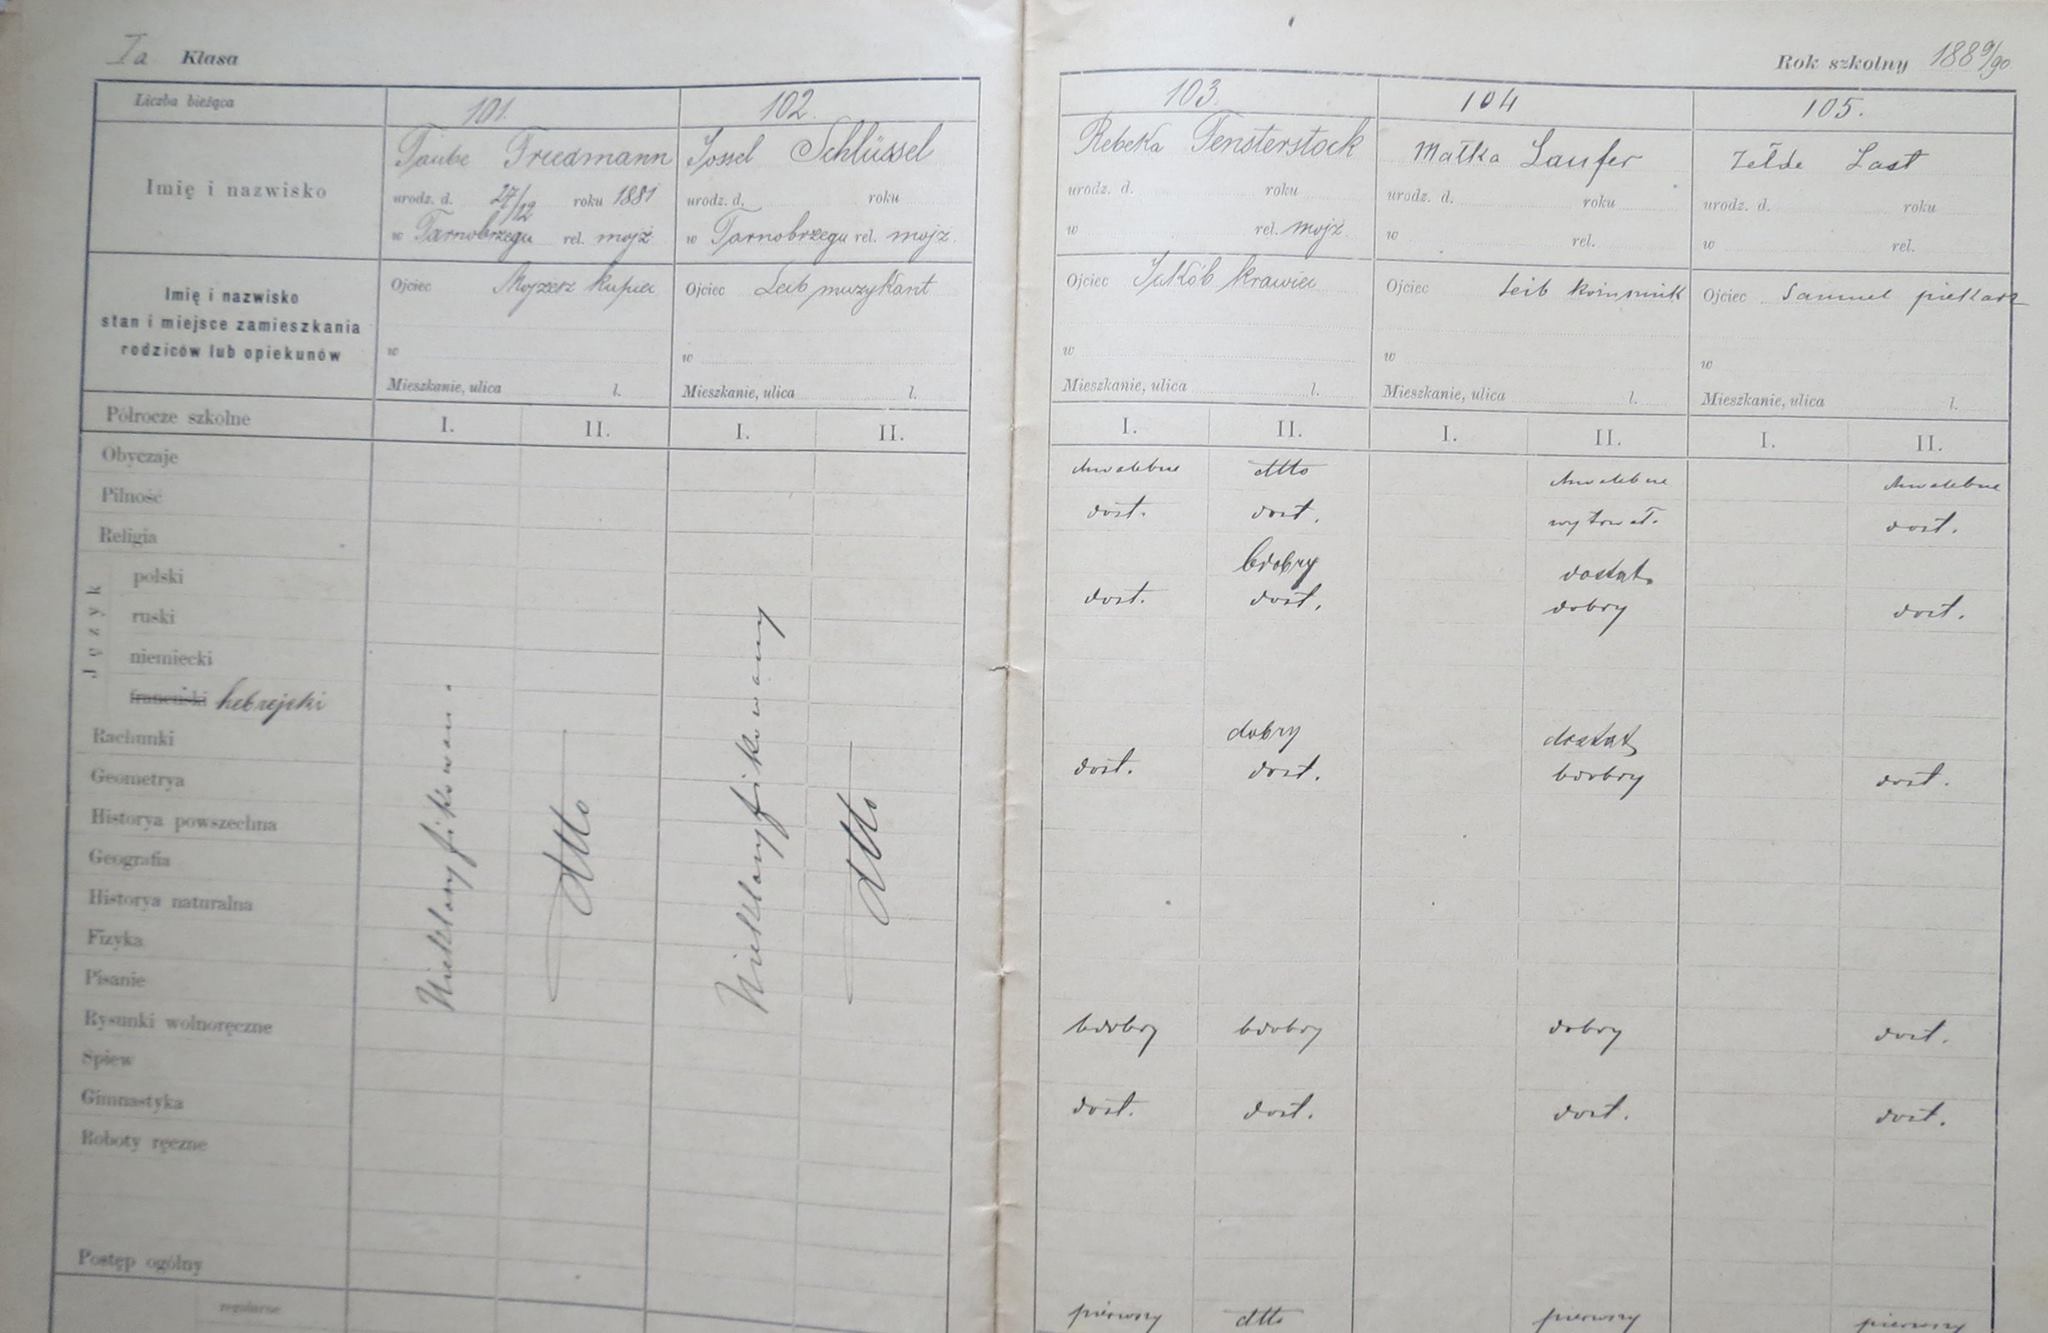 Ia Klasa
Rok szkolny 1889/90
Liczba bieżąca 101. 102. 103. 104 105.
Imię i nazwisko
Taube Friedmann
urodz. d. 27/12 roku 1881
w Tarnobrzegu rel. mojż
Jossel Schlüssel
urodz. d. roku
w Tarnobrzegu rel. mojż.
Rebeka Fensterstock
urodz. d. roku
w rel. mojż.
Małka Laufer
urodz. d. roku
w rel.
Zełde Last
urodz. d. roku
w rel.
Imię i nazwisko
stan i miejsce zamieszkania
rodziców lub opiekunów
Ojciec Mojżesz kupiec
w
Mieszkanie, ulica l.
Ojciec Leib muzykant
w
Mieszkanie, ulica l.
Ojciec Jakób krawiec
w
Mieszkanie, ulica l.
Ojciec Leib
w
Mieszkanie, ulica l.
Ojciec Samuel piekarz
w
Mieszkanie, ulica l.
Półrocze szkolne I. II. I. II. I. II. I. II. I. II.
Obyczaje chwalebne dtto chwalebne chwalebne
Pilność dost. dost. wytrwał. dost.
Religia bdobry dostat.
Język
polski dost. dost. dobry dost.
ruski
niemiecki
francuski hebrejski dobry dostat
Rachunki dost. dost. bdobry dost.
Geometrya
Historya powszechna
Geografia
Historya naturalna
Fizyka
Pisanie bdobry bdobry dobry dost.
Rysunki wolnoręczne
Śpiew dost. dost. dost. dost.
Gimnastyka
Roboty ręczne
Nieklasyfikowan.
dtto
Nieklasyfikowany
dtto
Postęp ogólny pierwszy dtto pierwszy pierwszy
regularne